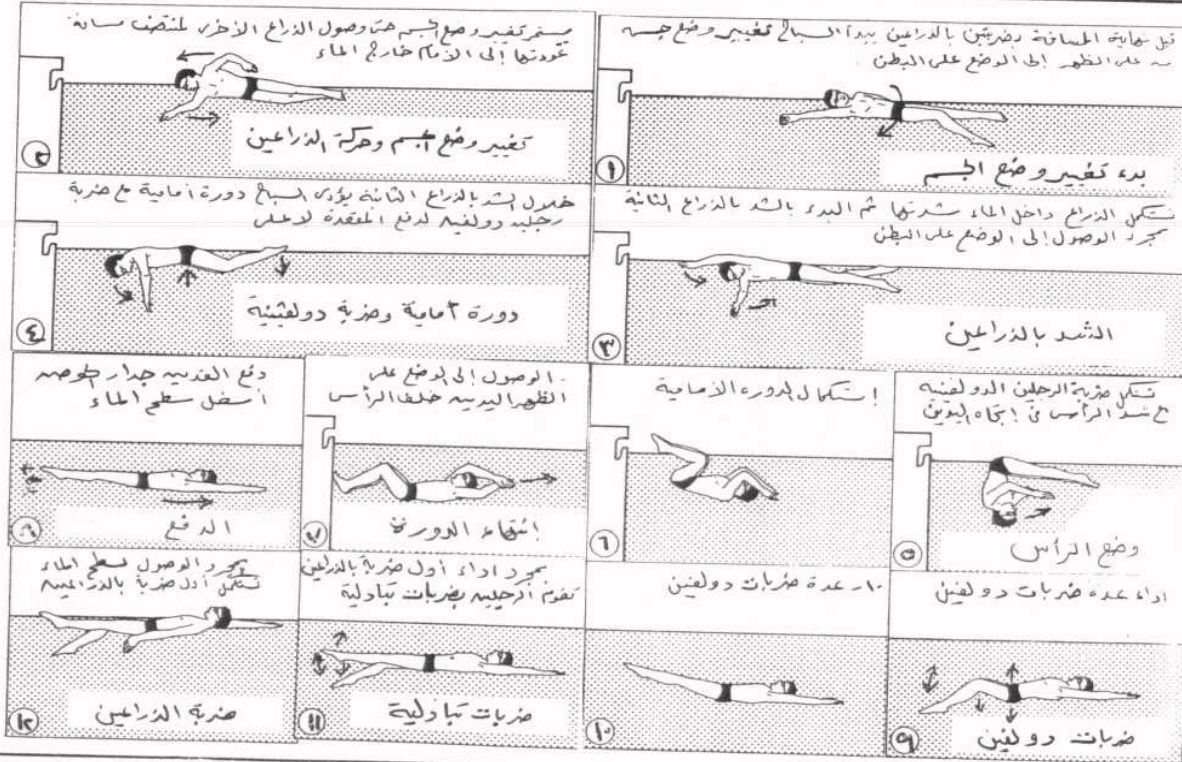 قبل نهاية المسافة بضربتين بالذراعين يبدأ السباح تغيير وضع جسمه
من على الظهر إلى الوضع على البطن.
١
بدء تغيير وضع الجسم
يستمر تغيير وضع الجسم حتى وصول الذراع الأخرى لمنتصف مسافة
عودتها إلى الأمام خارج الماء
٢
تغيير وضع الجسم وحركة الذراعين
تستكمل الذراع داخل الماء شدتها ثم البدء بالشد بالذراع الثانية
بمجرد الوصول إلى الوضع على البطن
٣
الشد بالذراعين
خلال الشد بالذراع الثانية يؤدى السباح دورة أمامية مع ضربة
رجلين دولفين لدفع المقعدة لأعلى
٤
دورة أمامية وضربة دولفينية
تستكمل ضربة الرجلين الدولفينية
مع شد الرأس فى إتجاه اليدين
٥
وضع الرأس
إستكمال الدورة الأمامية
٦
الوصول إلى الوضع على
الظهر اليدين خلف الرأس
٧
إنتهاء الدورة
دفع القدمين جدار الحوض
أسفل سطح الماء
الدفع
اداء عدة ضربات دولفين
٩
ضربات دولفين
١٠- عدة ضربات دولفين
١٠
بمجرد اداء أول ضربة بالذراعين
تقوم الرجلين بضربات تبادلية
١١
ضربات تبادلية
بمجرد الوصول لسطح الماء
تستكمل أول ضربة بالذراعين
١٢
ضربة الذراعين